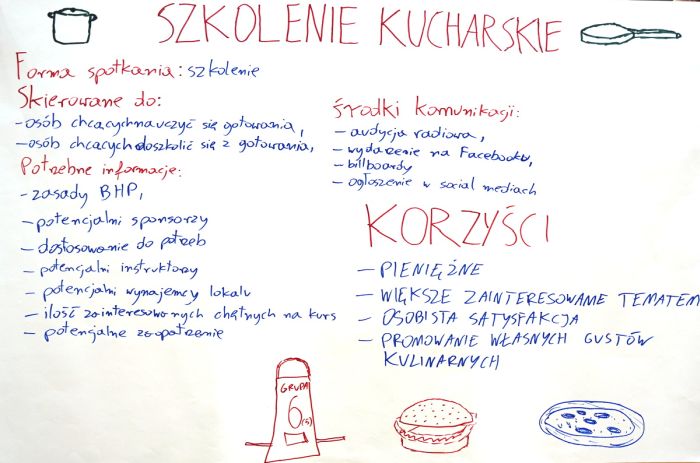 SZKOLENIE KUCHARSKIE
Forma spotkania: szkolenie
Skierowane do:
- osób chcących nauczyć się gotowania,
- osób chcących doszkolić się z gotowania,
Potrzebne informacje:
- zasady BHP,
- potencjalni sponsorzy
- dostosowanie do potrzeb
- potencjalni instruktorzy
- potencjalni wynajemcy lokalu
- ilość zainteresowanych chętnych na kurs
- potencjalne zaopatrzenie
Środki komunikacji:
- audycja radiowa,
- wydarzenie na Facebooku,
- billboardy
- ogłoszenie w social mediach
KORZYŚCI
- PIENIĘŻNE
- WIĘKSZE ZAINTERESOWANIE TEMATEM
- OSOBISTA SATYSFAKCJA
- PROMOWANIE WŁASNYCH GUSTÓW
KULINARNYCH
GRUPA
6(s)